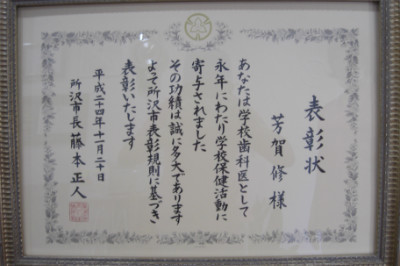 表彰状
芳賀修様
あなたは学校歯科医として
永年にわたり学校保健活動に
寄与されました
その功績は誠に多大であります
よって所沢市表彰規則に基づき
表彰いたします
平成二十四年十一月二十日
所沢市長藤本正人